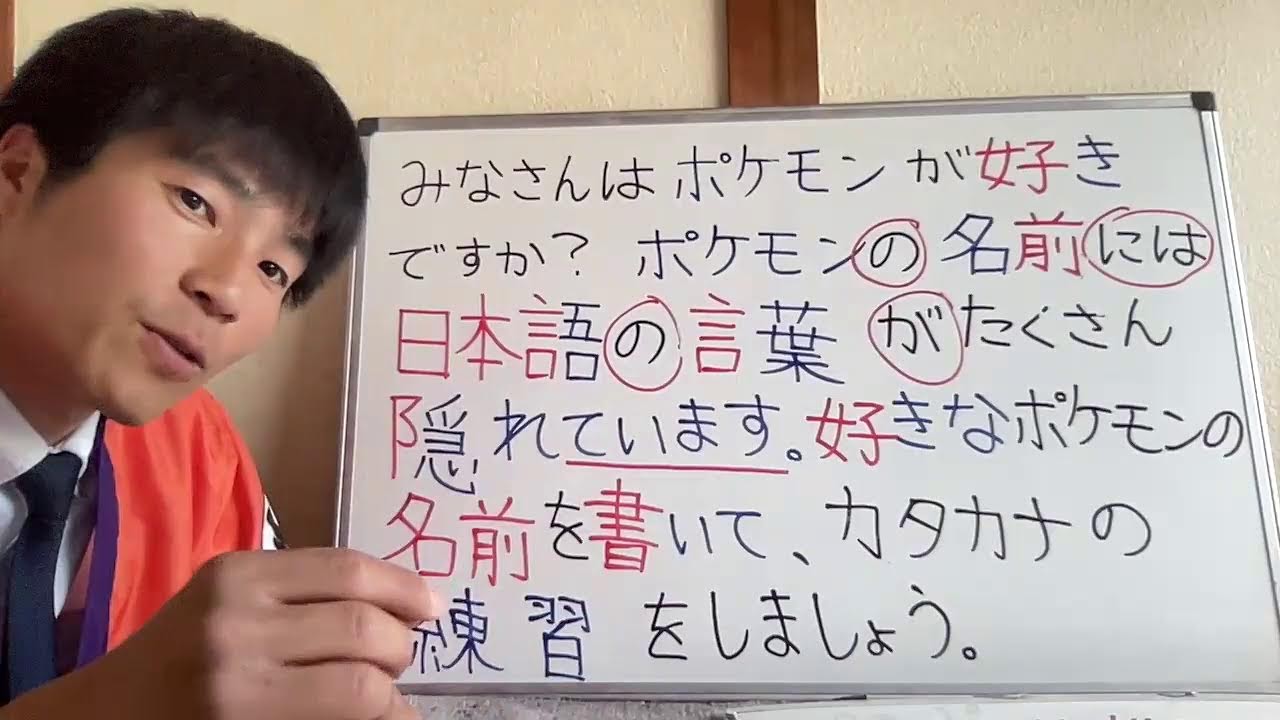 みなさんはポケモンが好き
ですか？ポケモンの名前には
日本語の言葉がたくさん
隠れています。好きなポケモンの
名前を書いて、カタカナの
練習をしましょう。